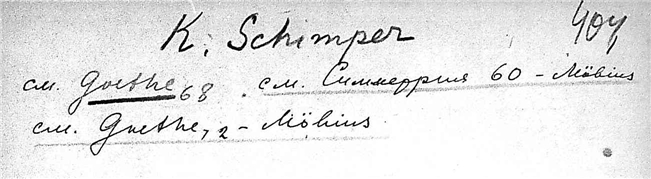 K. Schimper 404
см. Goethe 68. см. Симметрия 60 - Möbius
см. Goethe 72 - Möbius